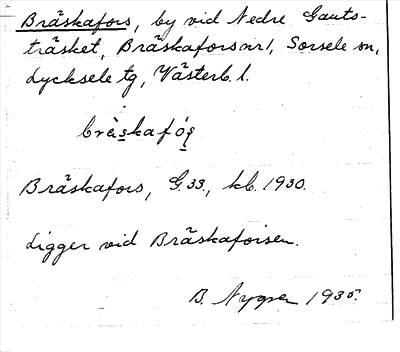 Bräskafors, by vid Nedre Gauts-
träsket, Bräskafors nr 1, Sorsele sn,
Lycksele tg, Västerb. l.
Bräskafors, G.33., kb. 1930.
Ligger vid Bräskaforsen.
B. Nygren 1935.